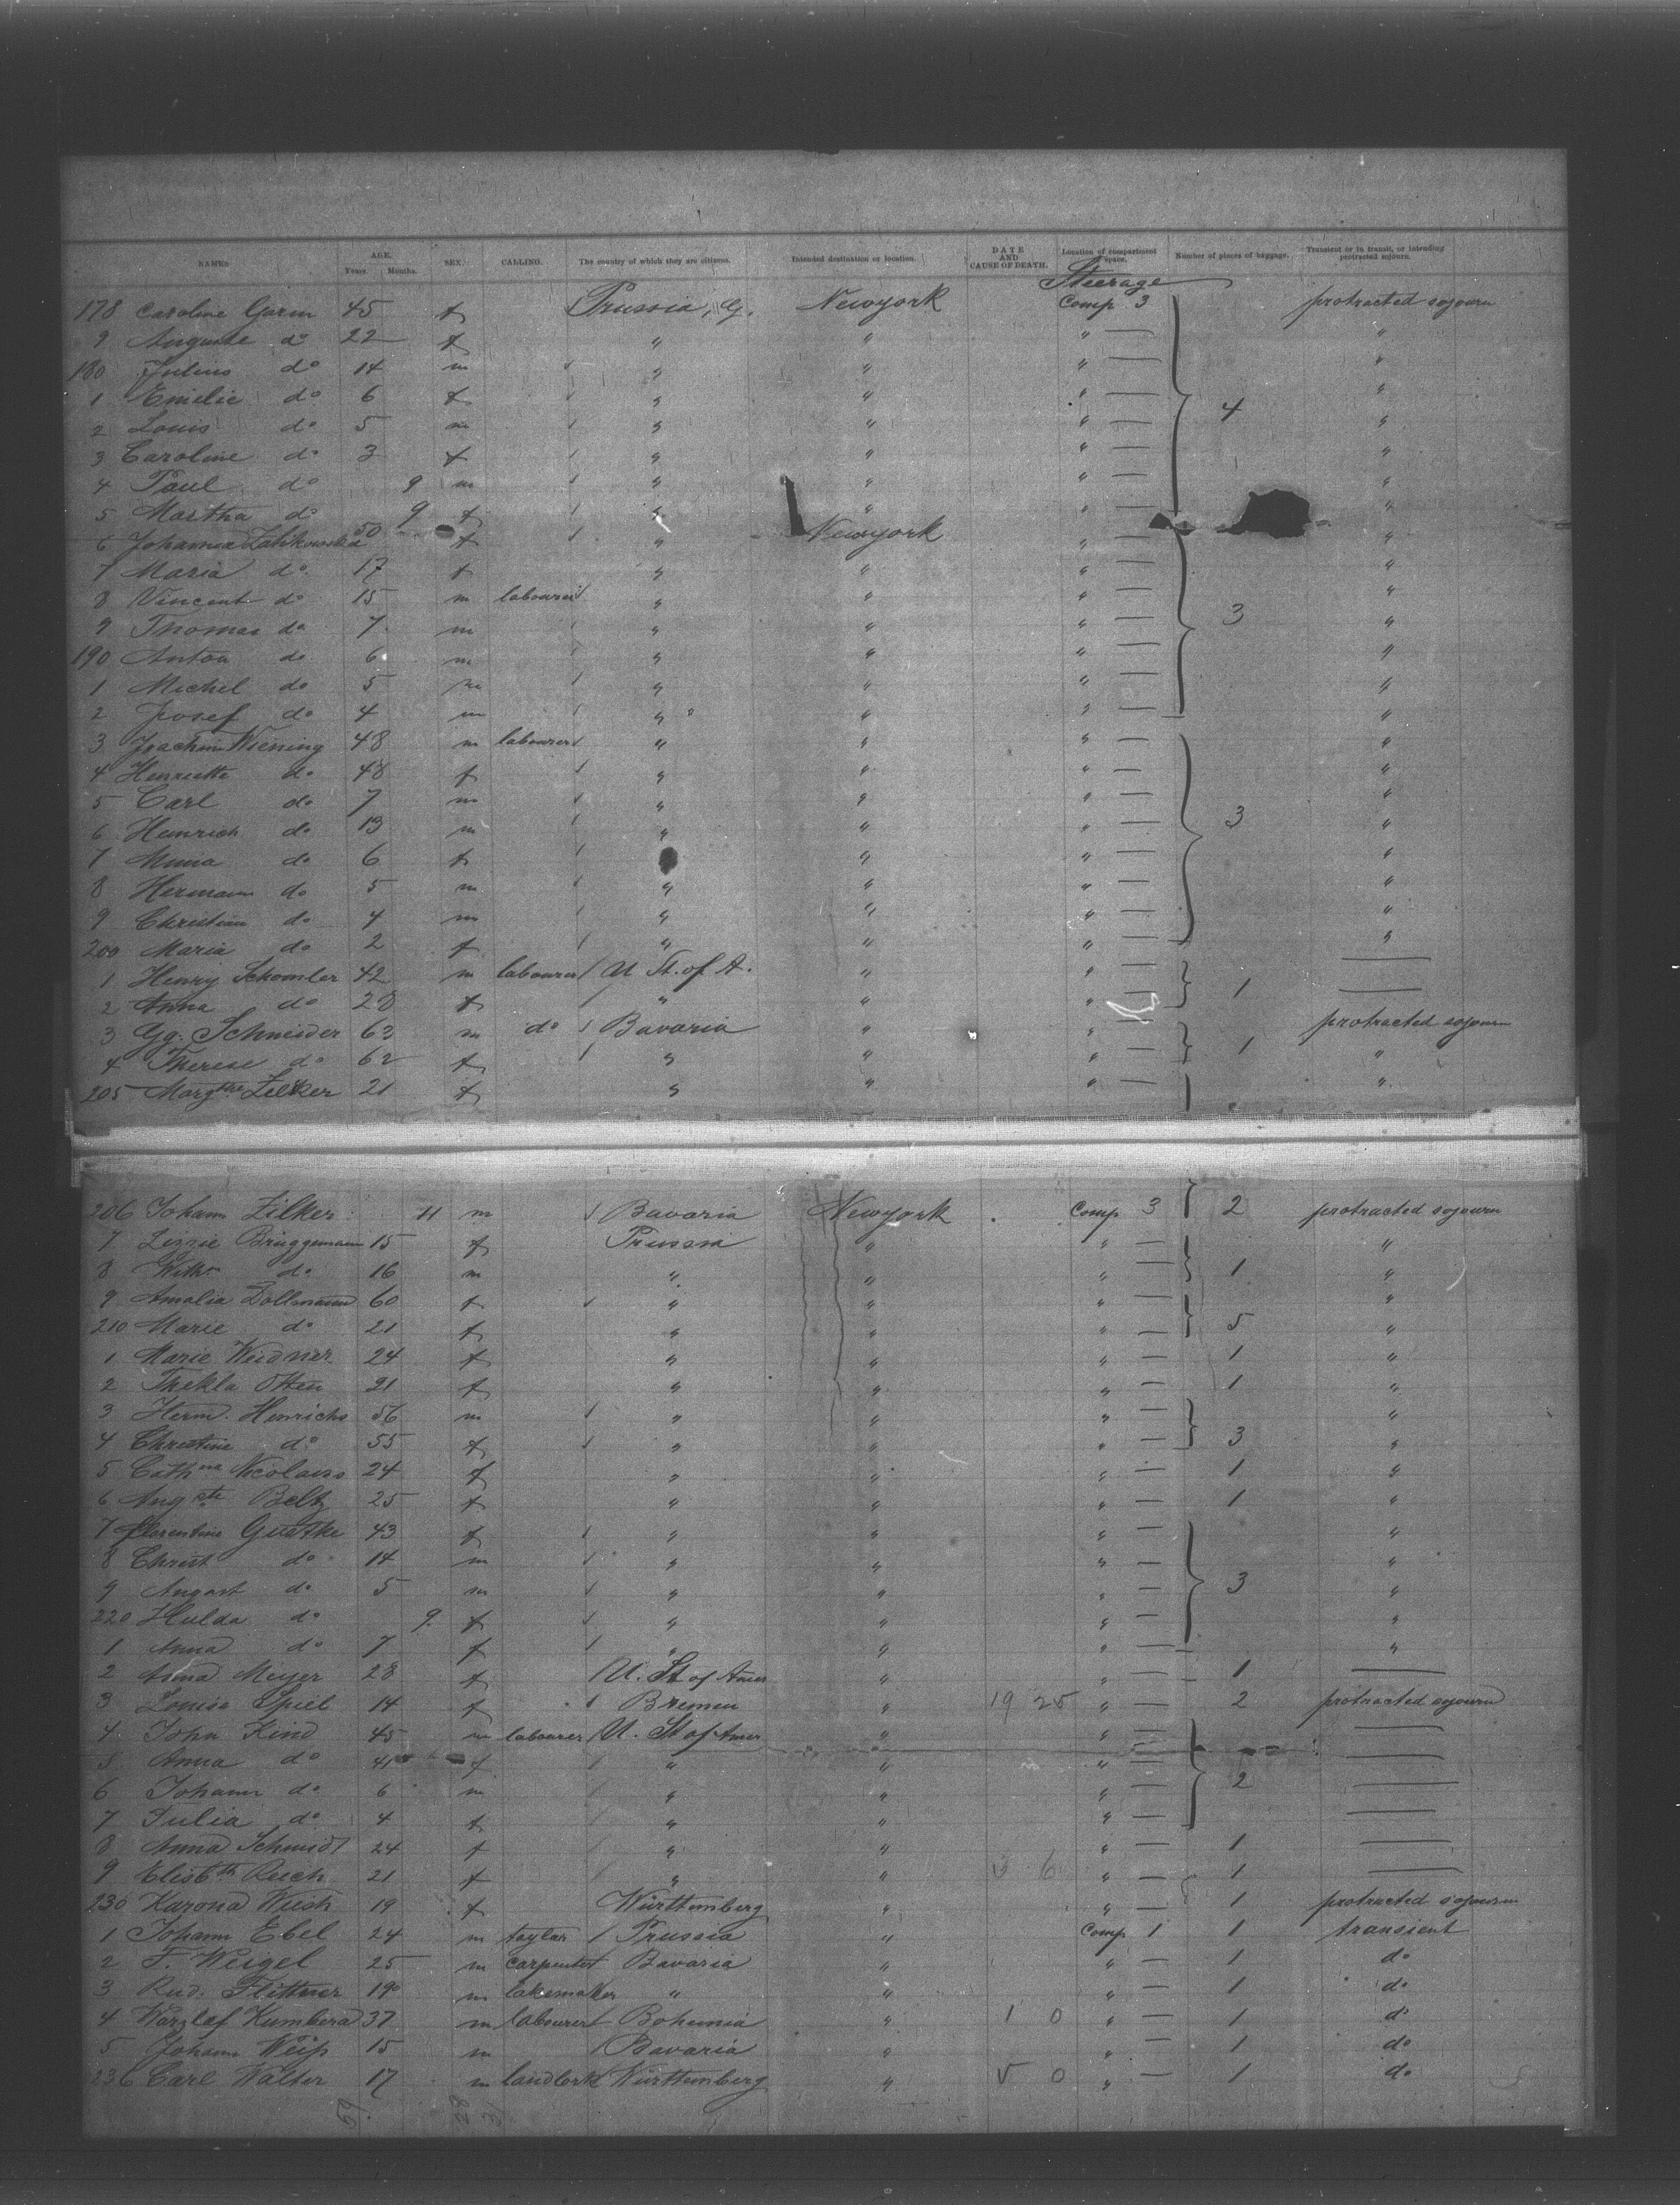 NAMES AGE. Years. Months. SEX. CALLING. The country of which they are citizens. Intended destination or location. DATE AND CAUSE OF DEATH. Location of compartment or space. Number of pieces of baggage. Transient or in transit, or intending protracted sojourn.
Steerage
178 Caroline Garm 45 f Prussia, Newyork Comp 3 protracted sojourn
9 Auguste do 22 f " " " — "
180 Julius do 14 m " " " — "
1 Emilie do 6 f " " " — "
2 Louis do 5 m " " " — 4 "
3 Caroline do 3 f " " " — "
4 Paul do 9 m " " " — "
5 Martha do 9 f " " " — "
6 Johanna 50 f " Newyork " — "
7 Maria do 17 f " " " — "
8 Vincent do 15 m labourer " " " — "
9 Thomas do 7 m " " " — 3 "
190 Anton do 6 m " " " — "
1 Michel do 5 m " " " — "
2 Josef do 4 m " " " — "
3 Joachim Wiening 48 m labourer " " " — "
4 Henriette do 48 f " " " — "
5 Carl do 7 m " " " — "
6 Heinrich do 13 m " " " — 3 "
7 Minna do 6 f " " — "
8 Hermann do 5 m " " " — "
9 Christian do 4 m " " " — "
200 Maria do 2 f " " " — "
1 Henry Schomler 42 m labourer U St. of A. " " — —
2 Anna do 28 f " " " — 1 —
3 Gg. Schneider 63 m do Bavaria " " — protracted sojourn
4 Therese do 62 f " " " — 1 "
205 Margthe Zilker 21 f " " " — "
206 Johann Zilker 11 m Bavaria Newyork Comp 3 2 protracted sojourn
7 Lizzie Brüggemann 15 f Prussia " " — "
8 Wilhm do 16 m " " " — 1 "
9 Amalia Dollmann 60 f " " " — "
210 Marie do 21 f " " " — 5 "
1 Marie Weidner 24 f " " " — 1 "
2 Thekla Otten 21 f " " " — 1 "
3 Herm. Henrichs 56 m " " " — "
4 Christine do 55 f " " " — 3 "
5 Cathna Nicolaiss 24 f " " " — 1 "
6 Augste Beltz 25 f " " " — 1 "
7 Florentine Guetke 43 f " " " — "
8 Christ do 14 m " " " — "
9 August do 5 m " " " — 3 "
220 Hulda do 9 f " " " — "
1 Anna do 7 f " " " — "
2 Anna Meyer 28 f U. St of Amer " " — 1 —
3 Louise Spiel 14 f Bremen " 19 25 " — 2 protracted sojourn
4 John Kind 45 m labourer U. St of Amer " " — —
5 Anna do 41 f " " " — —
6 Johann do 6 m " " " — 2 —
7 Julia do 4 f " " " — —
8 Anna Schmidt 24 f " " " — 1 —
9 Elisbth Reich 21 f " " 6 " — 1 —
230 Karona Wiesh 19 f Württemberg " " — 1 protracted sojourn
1 Johann Ebel 24 m taylor Prussia " Comp 1 1 transient
2 F. Weigel 25 m carpenter Bavaria " " — 1 do
3 Rud. Flittner 19 m lakemaker " " " — 1 do
4 Wazlaf Kumbera 37 m labourer Bohemia " 1 0 " — 1 do
5 Johann Weiß 15 m Bavaria " " — 1 do
236 Carl Walter 17 m Württemberg " 5 0 " — 1 do